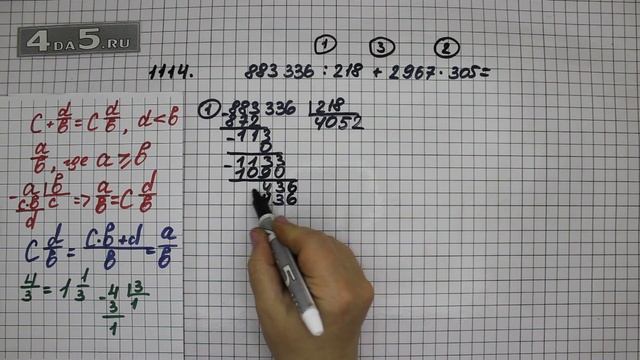 4DA5.RU
① ③ ②
1114. 883 336 : 218 + 2967 · 305 =
① - 883 336 | 218
872 4052
- 113
0
- 1133
1090
436
436
C + d/b = C d/b, d < b
a/b, где a ≥ b
- a | b
c·b c => a/b = C d/b
d
C d/b = (c·b+d)/b = a/b
4/3 = 1 1/3 - 4 | 3
3 1
1